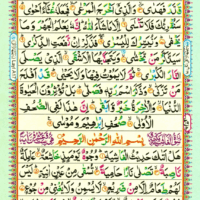 قَدَّرَ فَهَدٰى وَالَّذِيْۤ اَخْرَجَ الْمَرْعٰى فَجَعَلَهٗ غُثَآءً اَحْوٰى
سَنُقْرِئُكَ فَلَا تَنْسٰۤى اِلَّا مَا شَآءَ اللّٰهُ اِنَّهٗ يَعْلَمُ الْجَهْرَ وَمَا
يَخْفٰى وَنُيَسِّرُكَ لِلْيُسْرٰى فَذَكِّرْ اِنْ نَّفَعَتِ الذِّكْرٰى
سَيَذَّكَّرُ مَنْ يَّخْشٰى وَيَتَجَنَّبُهَا الْاَشْقَى الَّذِيْ يَصْلَى
النَّارَ الْكُبْرٰى ثُمَّ لَا يَمُوْتُ فِيْهَا وَلَا يَحْيٰى قَدْ اَفْلَحَ
مَنْ تَزَكّٰى وَذَكَرَ اسْمَ رَبِّهٖ فَصَلّٰى بَلْ تُؤْثِرُوْنَ الْحَيٰوةَ
الدُّنْيَا وَالْاٰخِرَةُ خَيْرٌ وَّاَبْقٰى اِنَّ هٰذَا لَفِي الصُّحُفِ
الْاُوْلٰى صُحُفِ اِبْرٰهِيْمَ وَمُوْسٰى
بِسْمِ اللّٰهِ الرَّحْمٰنِ الرَّحِيْمِ
هَلْ اَتٰىكَ حَدِيْثُ الْغَاشِيَةِ وُجُوْهٌ يَّوْمَئِذٍ خَاشِعَةٌ عَامِلَةٌ
نَّاصِبَةٌ تَصْلٰى نَارًا حَامِيَةً تُسْقٰى مِنْ عَيْنٍ اٰنِيَةٍ لَيْسَ
لَهُمْ طَعَامٌ اِلَّا مِنْ ضَرِيْعٍ لَّا يُسْمِنُ وَلَا يُغْنِيْ مِنْ جُوْعٍ